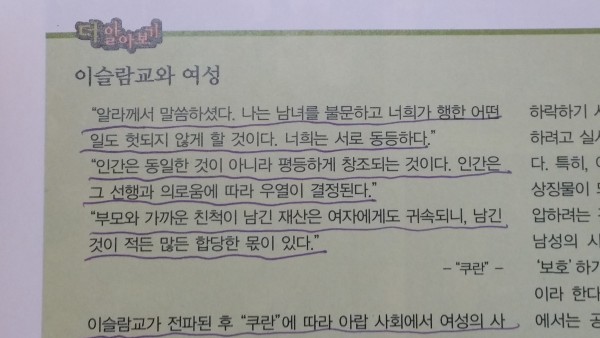 더 알아보기
이슬람교와 여성
“알라께서 말씀하셨다. 나는 남녀를 불문하고 너희가 행한 어떤
일도 헛되지 않게 할 것이다. 너희는 서로 동등하다.”
“인간은 동일한 것이 아니라 평등하게 창조되는 것이다. 인간은
그 선행과 의로움에 따라 우열이 결정된다.”
“부모와 가까운 친척이 남긴 재산은 여자에게도 귀속되니, 남긴
것이 적든 많든 합당한 몫이 있다.”
– “쿠란” –
이슬람교가 전파된 후 “쿠란”에 따라 아랍 사회에서 여성의 사
하락하기 시
하려고 실시
다. 특히,
상징물이
압하려는
남성의 시
‘보호’하기
이라 한다
에서는 공